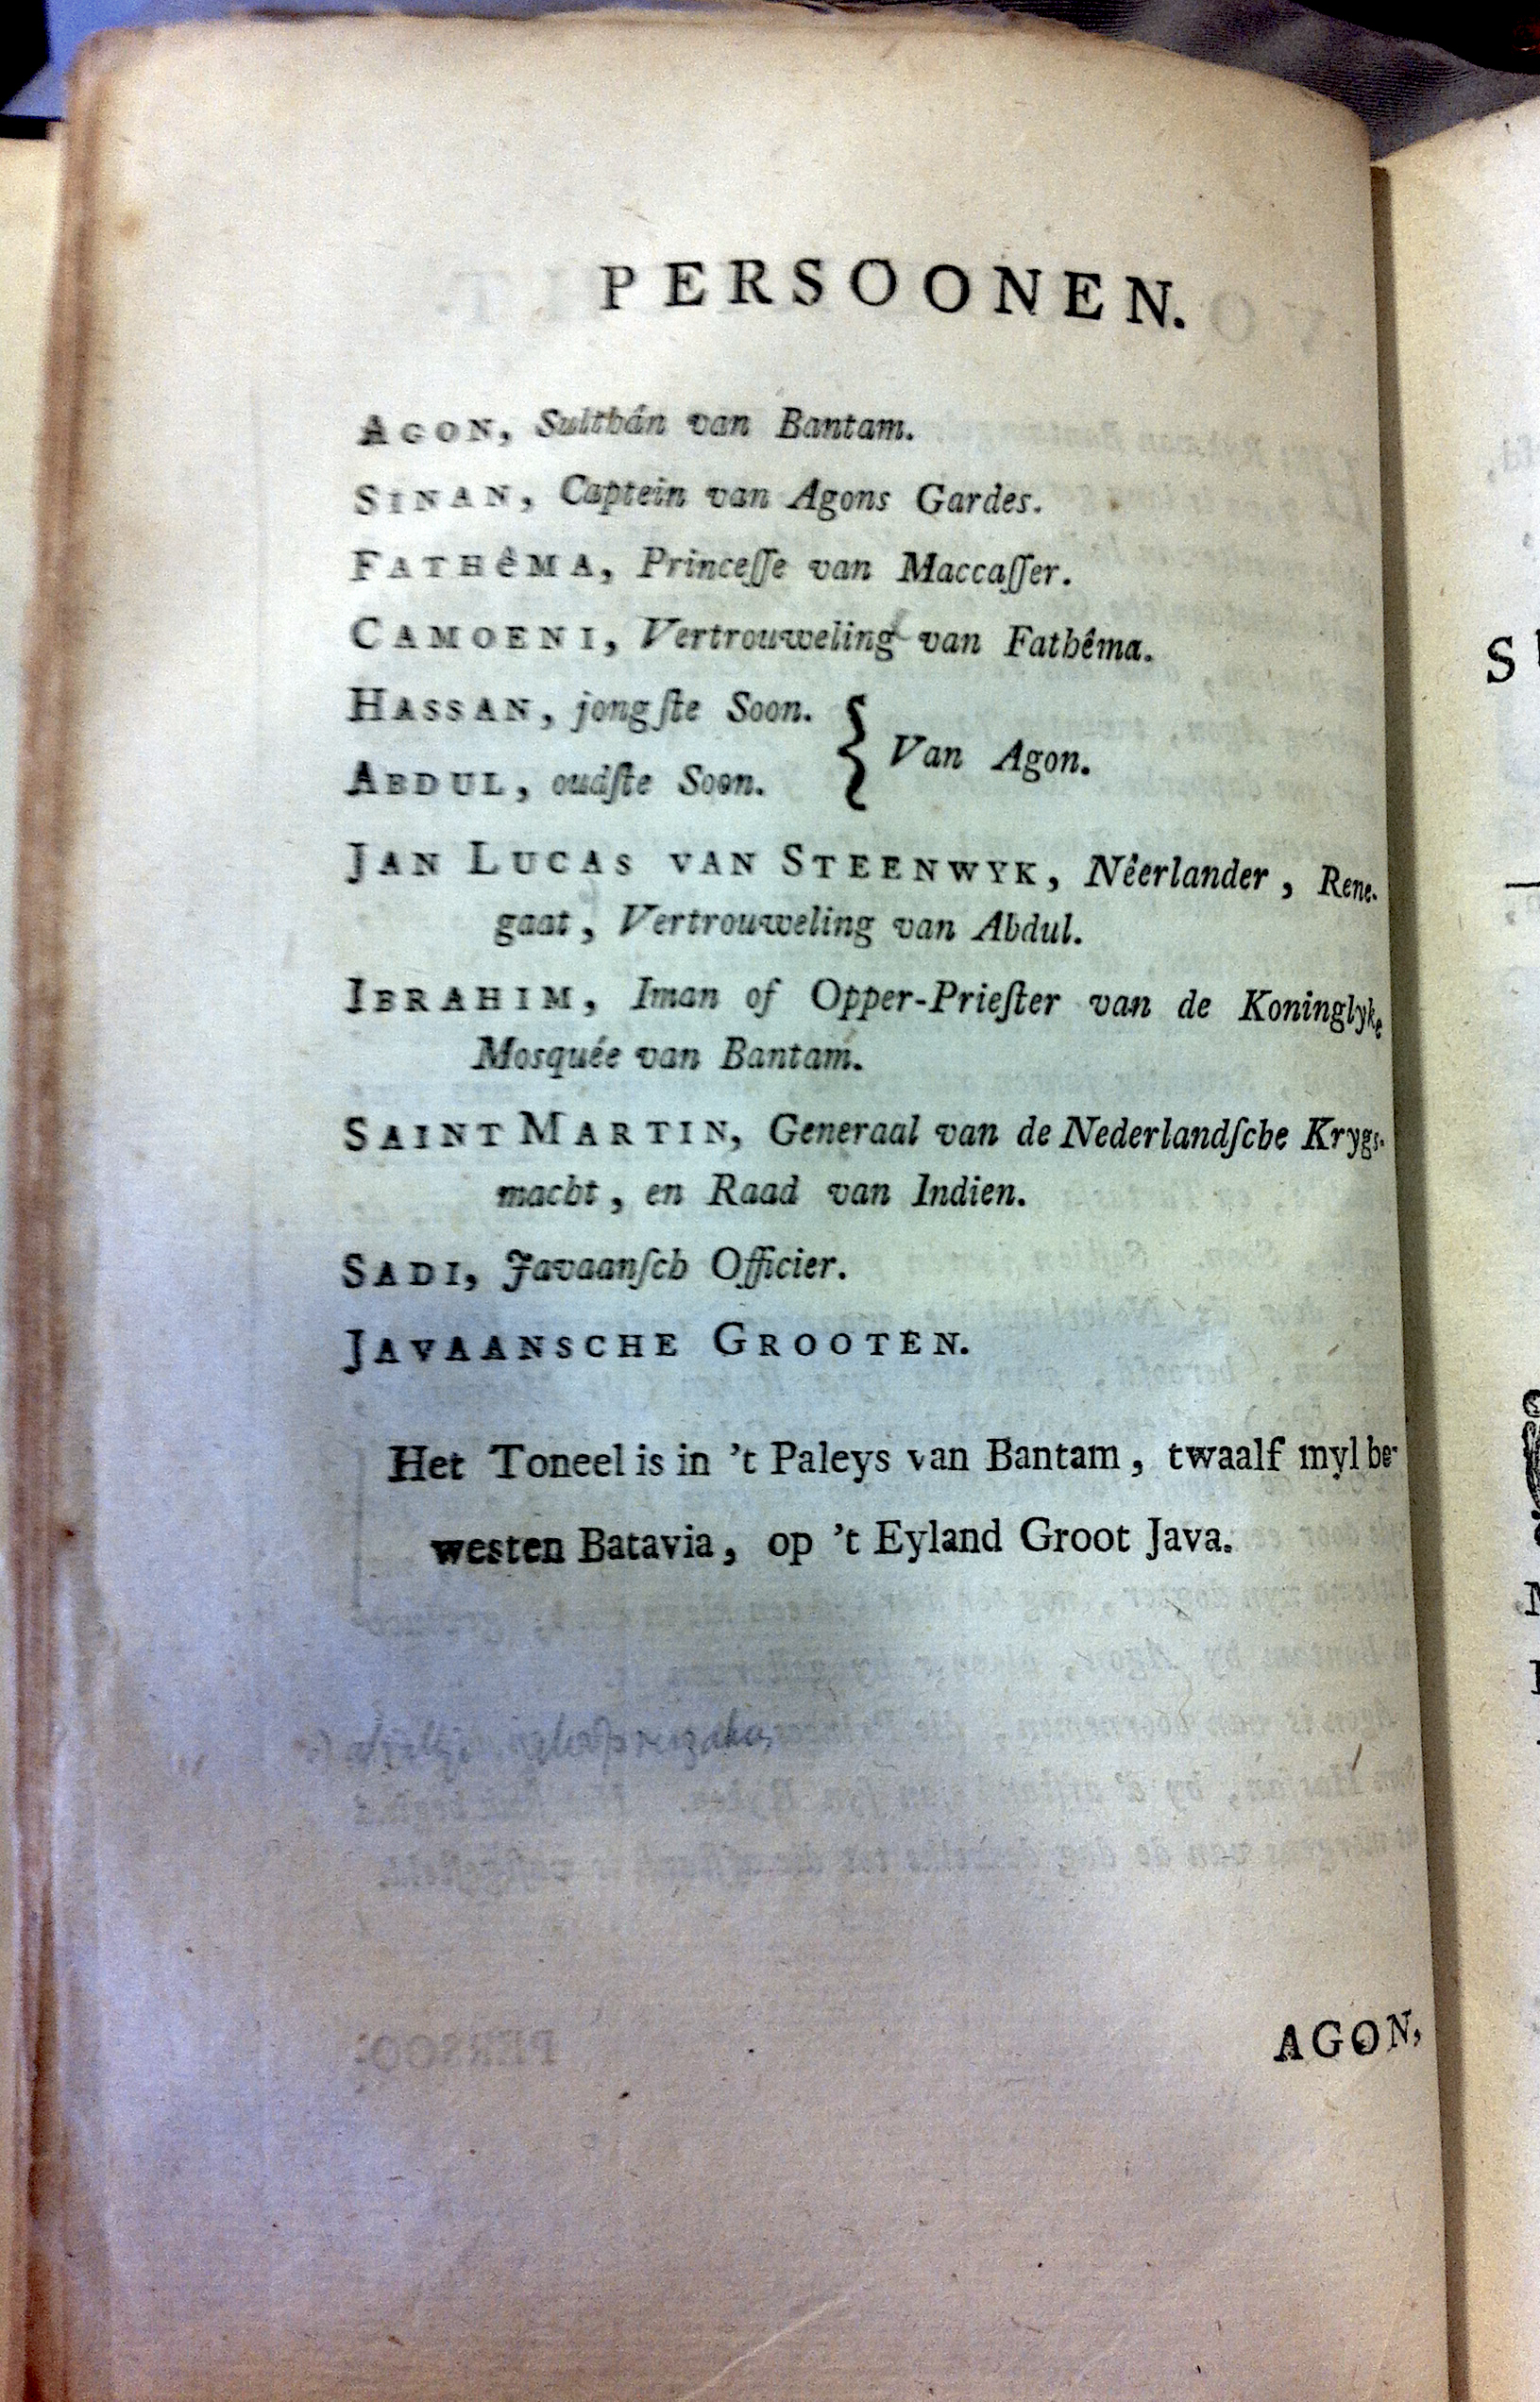 PERSOONEN.
AGON, Sulthán van Bantam.
SINAN, Captein van Agons Gardes.
FATHêMA, Princeſſe van Maccaſſer.
CAMOENI, Vertrouweling van Fathêma.
HASSAN, jongſte Soon.
ABDUL, oudſte Soon.
Van Agon.
JAN LUCAS VAN STEENWYK, Nêerlander, Rene-
gaat, Vertrouweling van Abdul.
IBRAHIM, Iman of Opper-Prieſter van de Koninglyke
Mosquée van Bantam.
SAINT MARTIN, Generaal van de Nederlandſche Krygs-
macht, en Raad van Indien.
SADI, Javaanſch Officier.
JAVAANSCHE GROOTEN.
Het Toneel is in 't Paleys van Bantam, twaalf myl be-
westen Batavia, op 't Eyland Groot Java.
AGON,